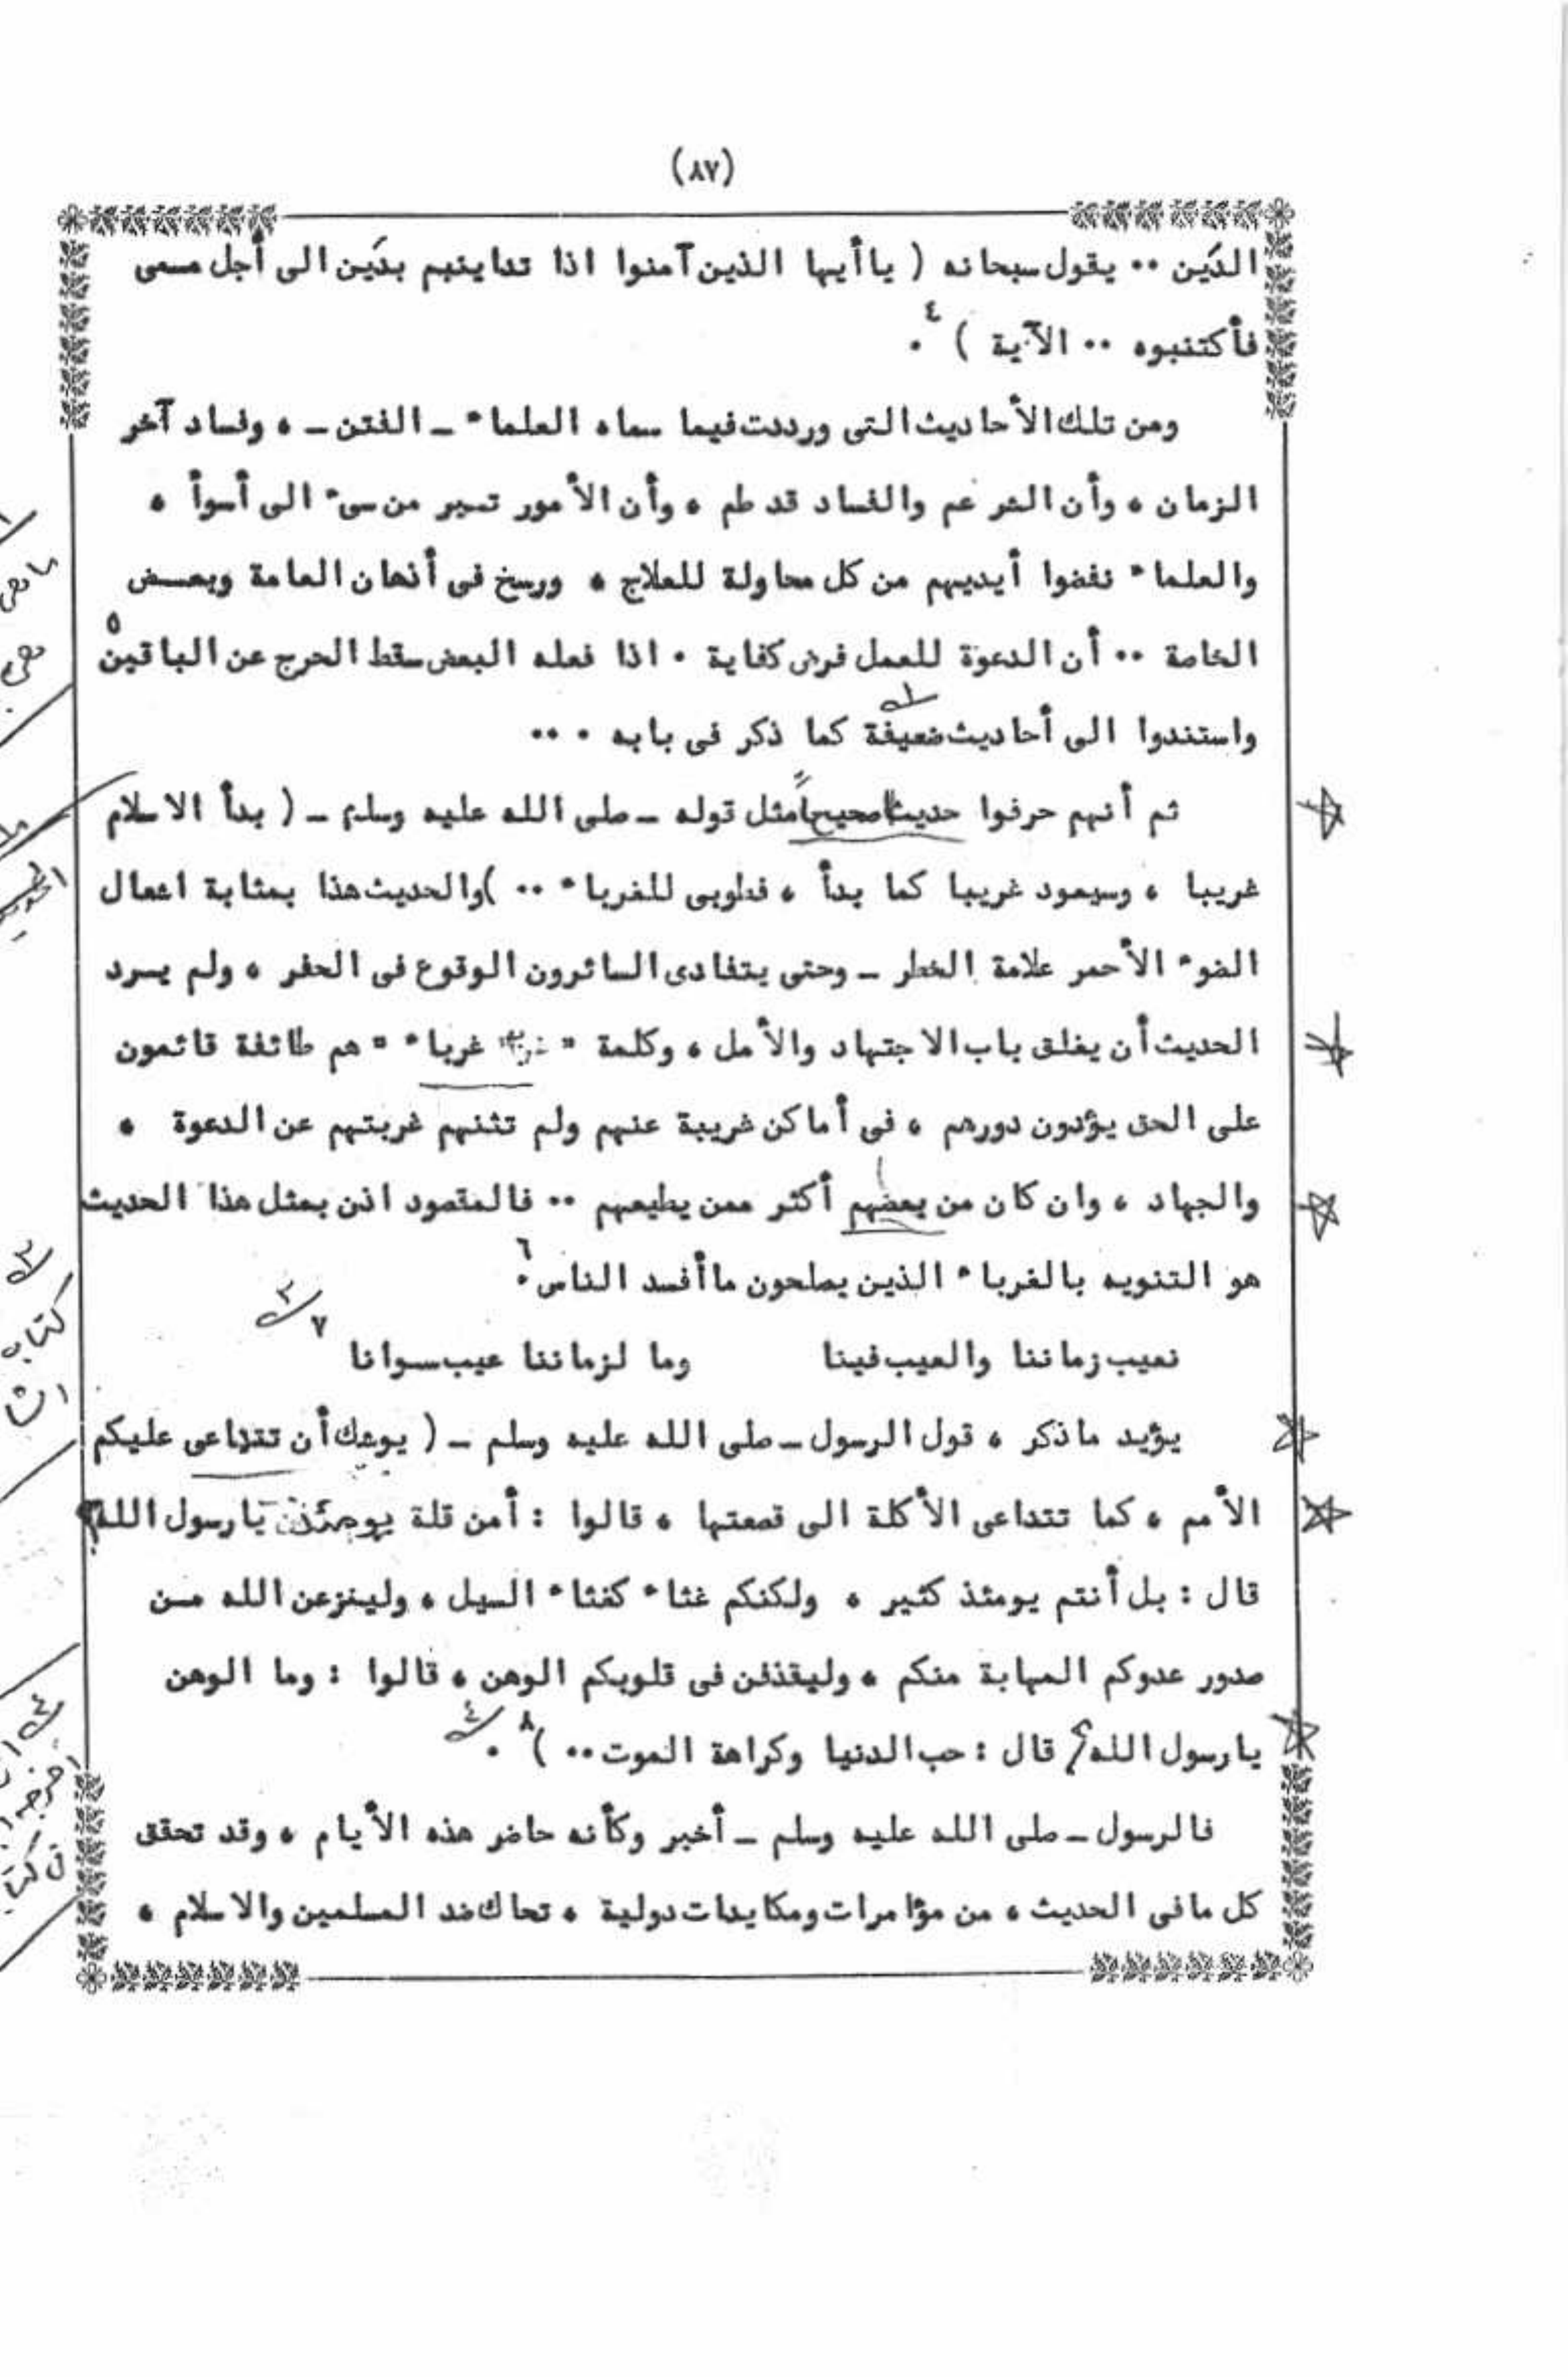 (٨٧)
الدَين .. يقول سبحانه ( يا أيها الذين آمنوا اذا تداينبم بدَين الى أجل مسمى
فأكتنبوه .. الآية ) ٤ .
ومن تلك الأحاديث التى ورددت فيما سماه العلماء ـ الفتن ـ ، وفساد آخر
الزمان ، وأن الشر عم والفساد قد طم ، وأن الأمور تسير من سىء الى أسوأ ،
والعلماء نفضوا أيديهم من كل محاولة للعلاج ، ورسخ فى أذهان العامة وبعــض
الخاصة .. أن الدعوة للعمل فرض كفاية . اذا فعله البعض سقط الحرج عن الباقين ٥
واستندوا الى أحاديث ضعيفة كما ذكر فى بابه . ..
ثم أنهم حرفوا حديثا صحيحاً مثل قوله ـ صلى الله عليه وسلم ـ ( بدأ الاسلام
غريبا ، وسيعود غريبا كما بدأ ، فطوبى للغرباء .. ) والحديث هذا بمثابة اعمال
الضوء الأحمر علامة الخطر ـ وحتى يتفادى السائرون الوقوع فى الحفر ، ولم يسرد
الحديث أن يغلق باب الاجتهاد والأمل ، وكلمة " غرباء " هم طائفة قائمون
على الحق يؤدون دورهم ، فى أماكن غريبة عنهم ولم تثنهم غربتهم عن الدعوة ،
والجهاد ، وان كان من يعصهم أكثر ممن يطيعهم .. فالمقصود اذن بمثل هذا الحديث
هو التنويه بالغرباء الذين يصلحون ما أفسد الناس ٦ .
نعيب زماننا والعيب فينا وما لزماننا عيب سوانا ٧
يؤيد ماذكر ، قول الرسول ـ صلى الله عليه وسلم ـ ( يوشك أن تتداعى عليكم
الأمم ، كما تتداعى الأكلة الى قصعتها ، قالوا : أمن قلة يومئذ يارسول الله؟
قال : بل أنتم يومئذ كثير ، ولكنكم غثاء كغثاء السيل ، ولينزعن الله مــن
صدور عدوكم المهابة منكم ، وليقذفن فى قلوبكم الوهن ، قالوا : وما الوهن
يارسول الله؟ قال : حب الدنيا وكراهة الموت .. ) ٨ .
فالرسول ـ صلى الله عليه وسلم ـ أخبر وكأنه حاضر هذه الأيام ، وقد تحقق
كل مافى الحديث ، من مؤامرات ومكايدات دولية ، تحاك ضد المسلمين والاسلام ،